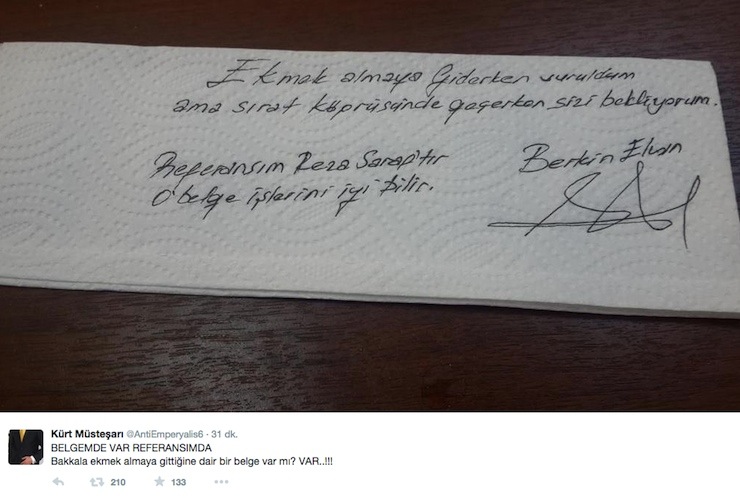 Ekmek almaya Giderken vuruldum
ama sırat köprüsünde geçerken sizi bekliyorum.
Referansım Reza Sarap'tır
O belge işlerini iyi bilir.
Berkin Elvan
Kürt Müsteşarı @AntiEmperyalis6 · 31 dk.
BELGEMDE VAR REFERANSIMDA
Bakkala ekmek almaya gittiğine dair bir belge var mı? VAR..!!!
210
133